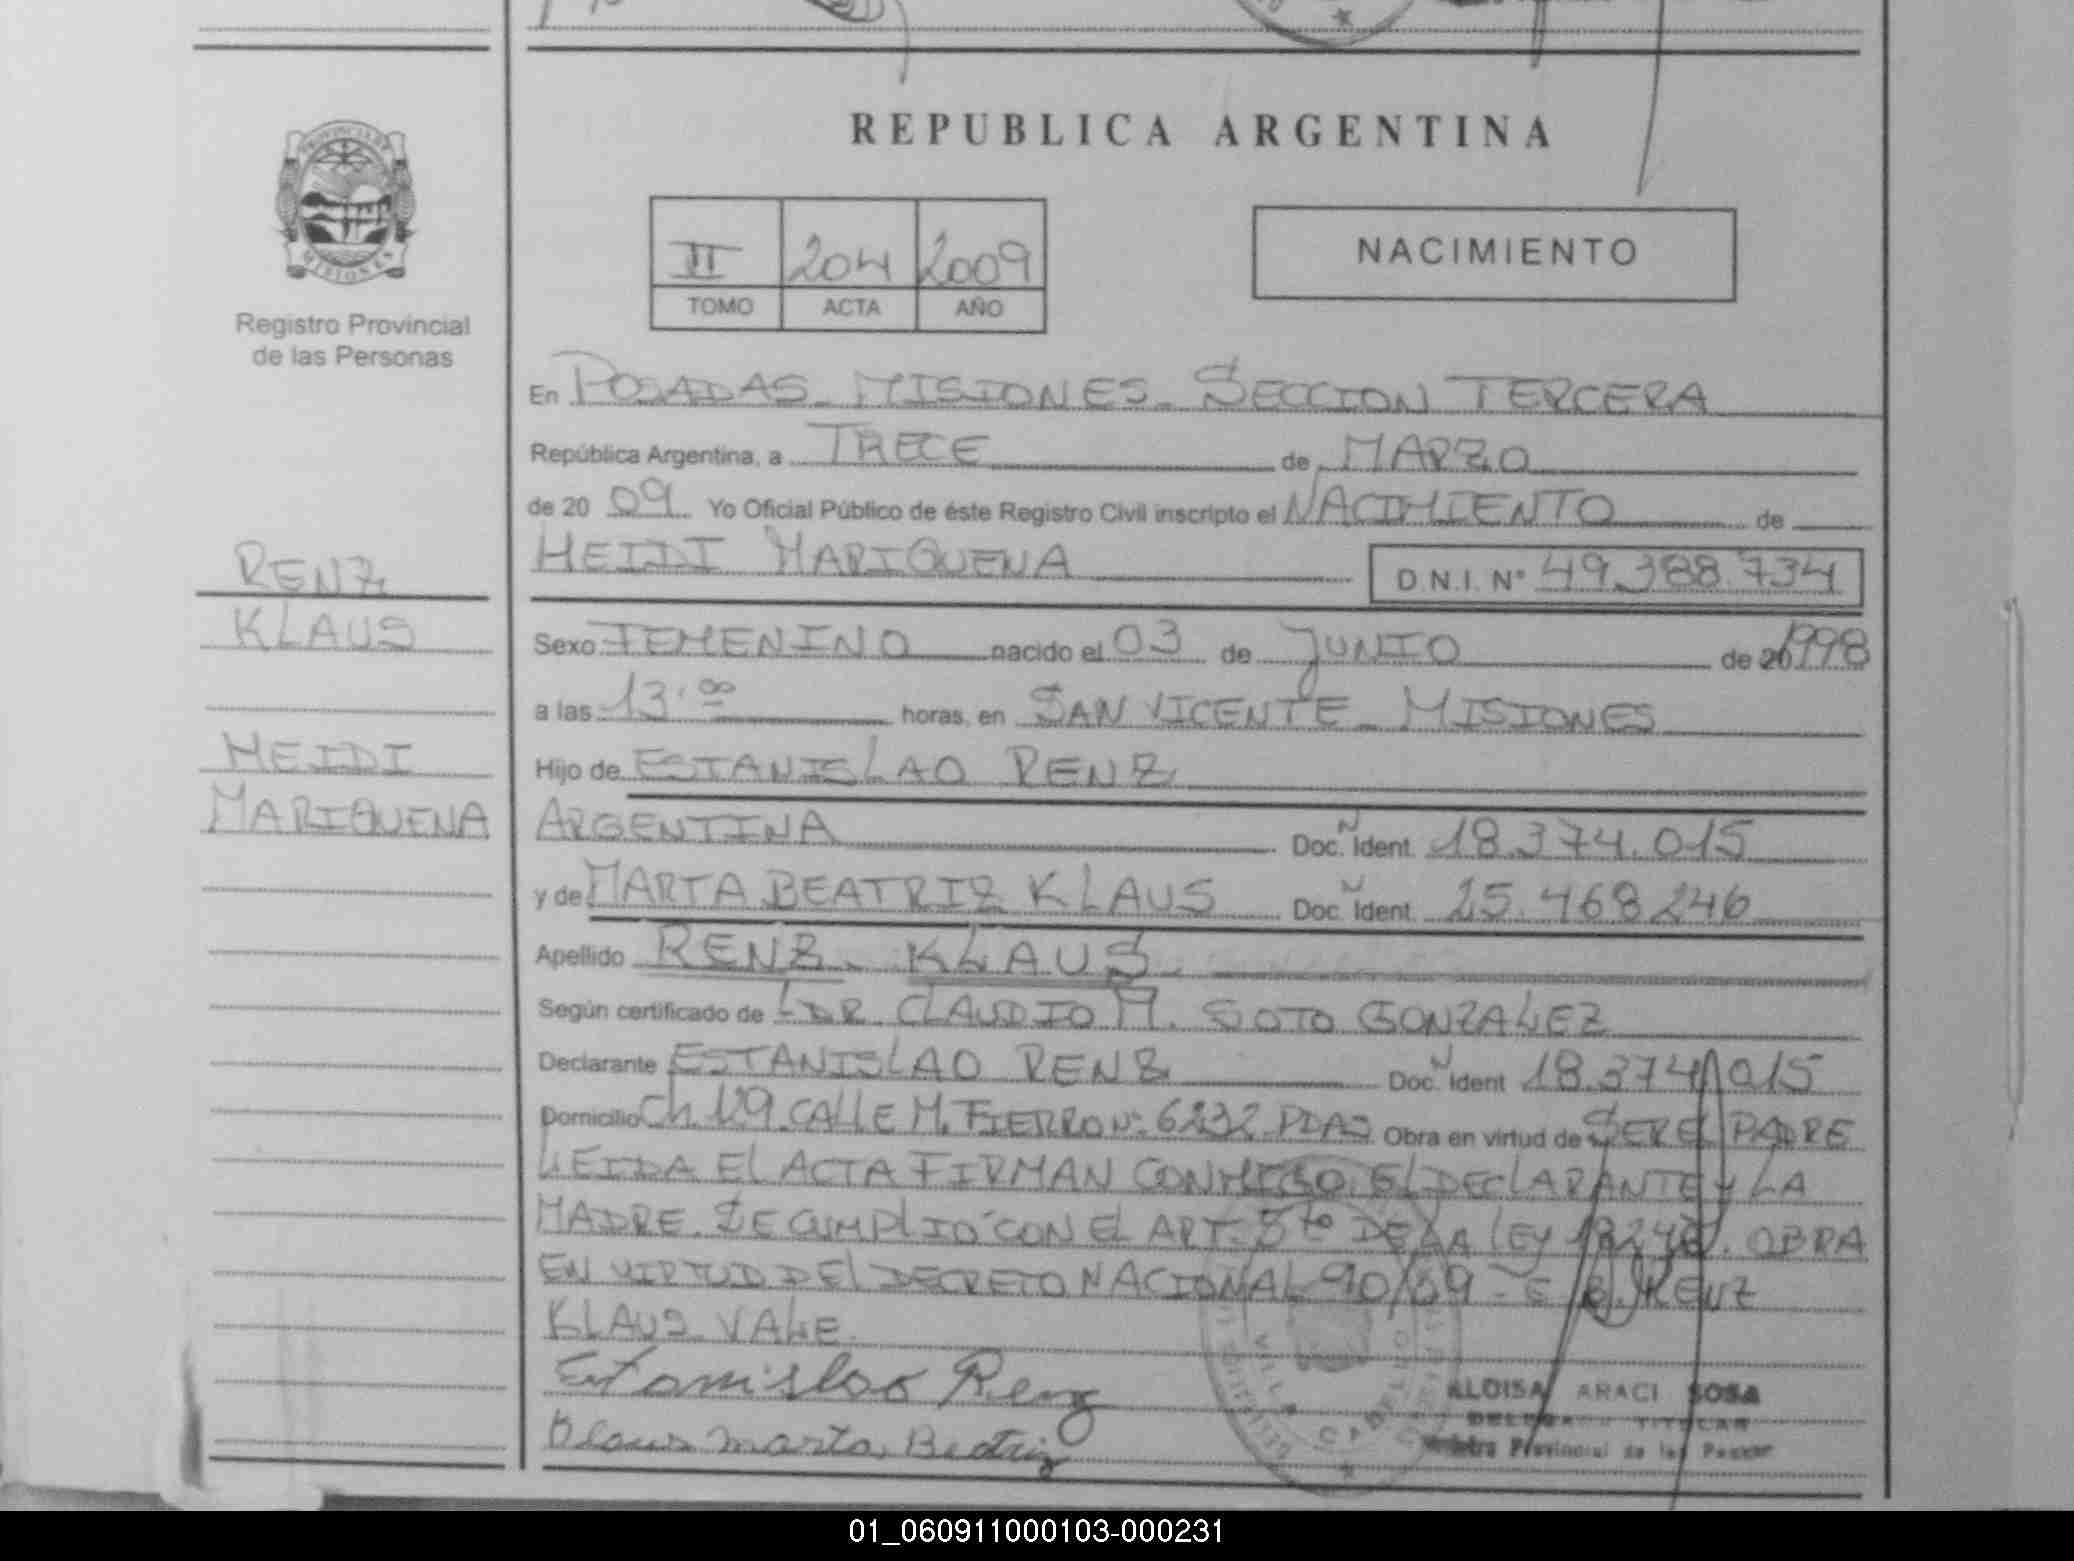 REPUBLICA ARGENTINA
PROVINCIA DE
MISIONES
Registro Provincial
de las Personas
II 204 2009
TOMO ACTA AÑO
NACIMIENTO
En POSADAS - MISIONES - SECCION TERCERA
República Argentina, a TRECE de MARZO
de 20 09 Yo Oficial Público de éste Registro Civil inscripto el NACIMIENTO de
HEIDI MARIQUENA D.N.I. Nº 49.388.734
RENZ
KLAUS
HEIDI
MARIQUENA
Sexo FEMENINO nacido el 03 de JUNIO de 1998
a las 13.00 horas, en SAN VICENTE - MISIONES
Hijo de ESTANISLAO RENZ
ARGENTINA Doc. Ident. 18.374.015
y de MARTA BEATRIZ KLAUS Doc. Ident. 25.468.246
Apellido RENZ - KLAUS.
Según certificado de DR. CLAUDIO M. SOTO GONZALEZ
Declarante ESTANISLAO RENZ Doc. Ident 18.374.015
Domicilio Ch. 129 CALLE M. FIERRO Nº 6232 PDAS Obra en virtud de SER EL PADRE
LEIDA El ACTA FIRMAN CONMIGO. El DEClARANTE y LA
MADRE. SE CUMPlIO CON El ART. 5to DE LA lEy 18248. OBRA
EN VIRTUD DEl DECRETO NACIONAL 90/09 - RENZ
KLAUS. VALE.
Estanislao Renz
Klaus Marta Beatriz
ALOISA ARACI SOSA
DELEGADO TITULAR
Provincial de las
01_060911000103-000231